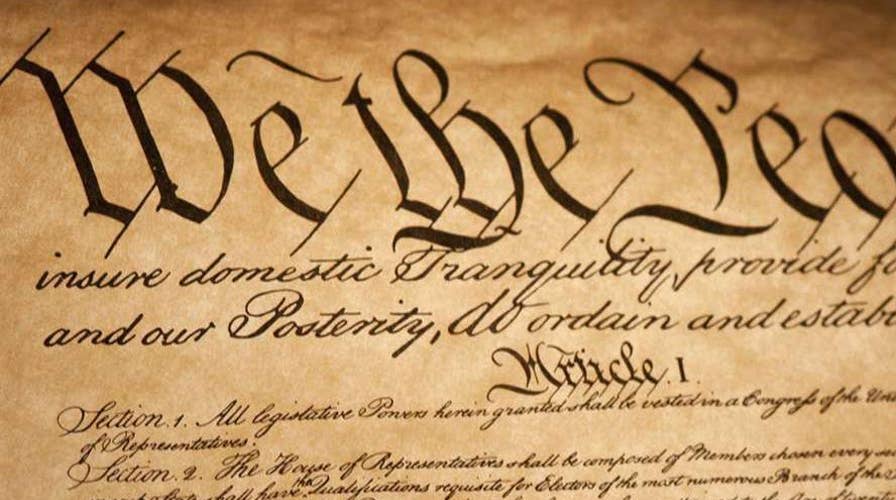 We the Peo
insure domestic Tranquility, provide fo
and our Posterity, do ordain and establ
Article. I.
Section. 1. All legislative Powers herein granted shall be vested in a Congress of the Uni
of Representatives.
Section. 2. The House of Representatives shall be composed of Members chosen every se
shall have the Qualifications requisite for Electors of the most numerous Branch of the